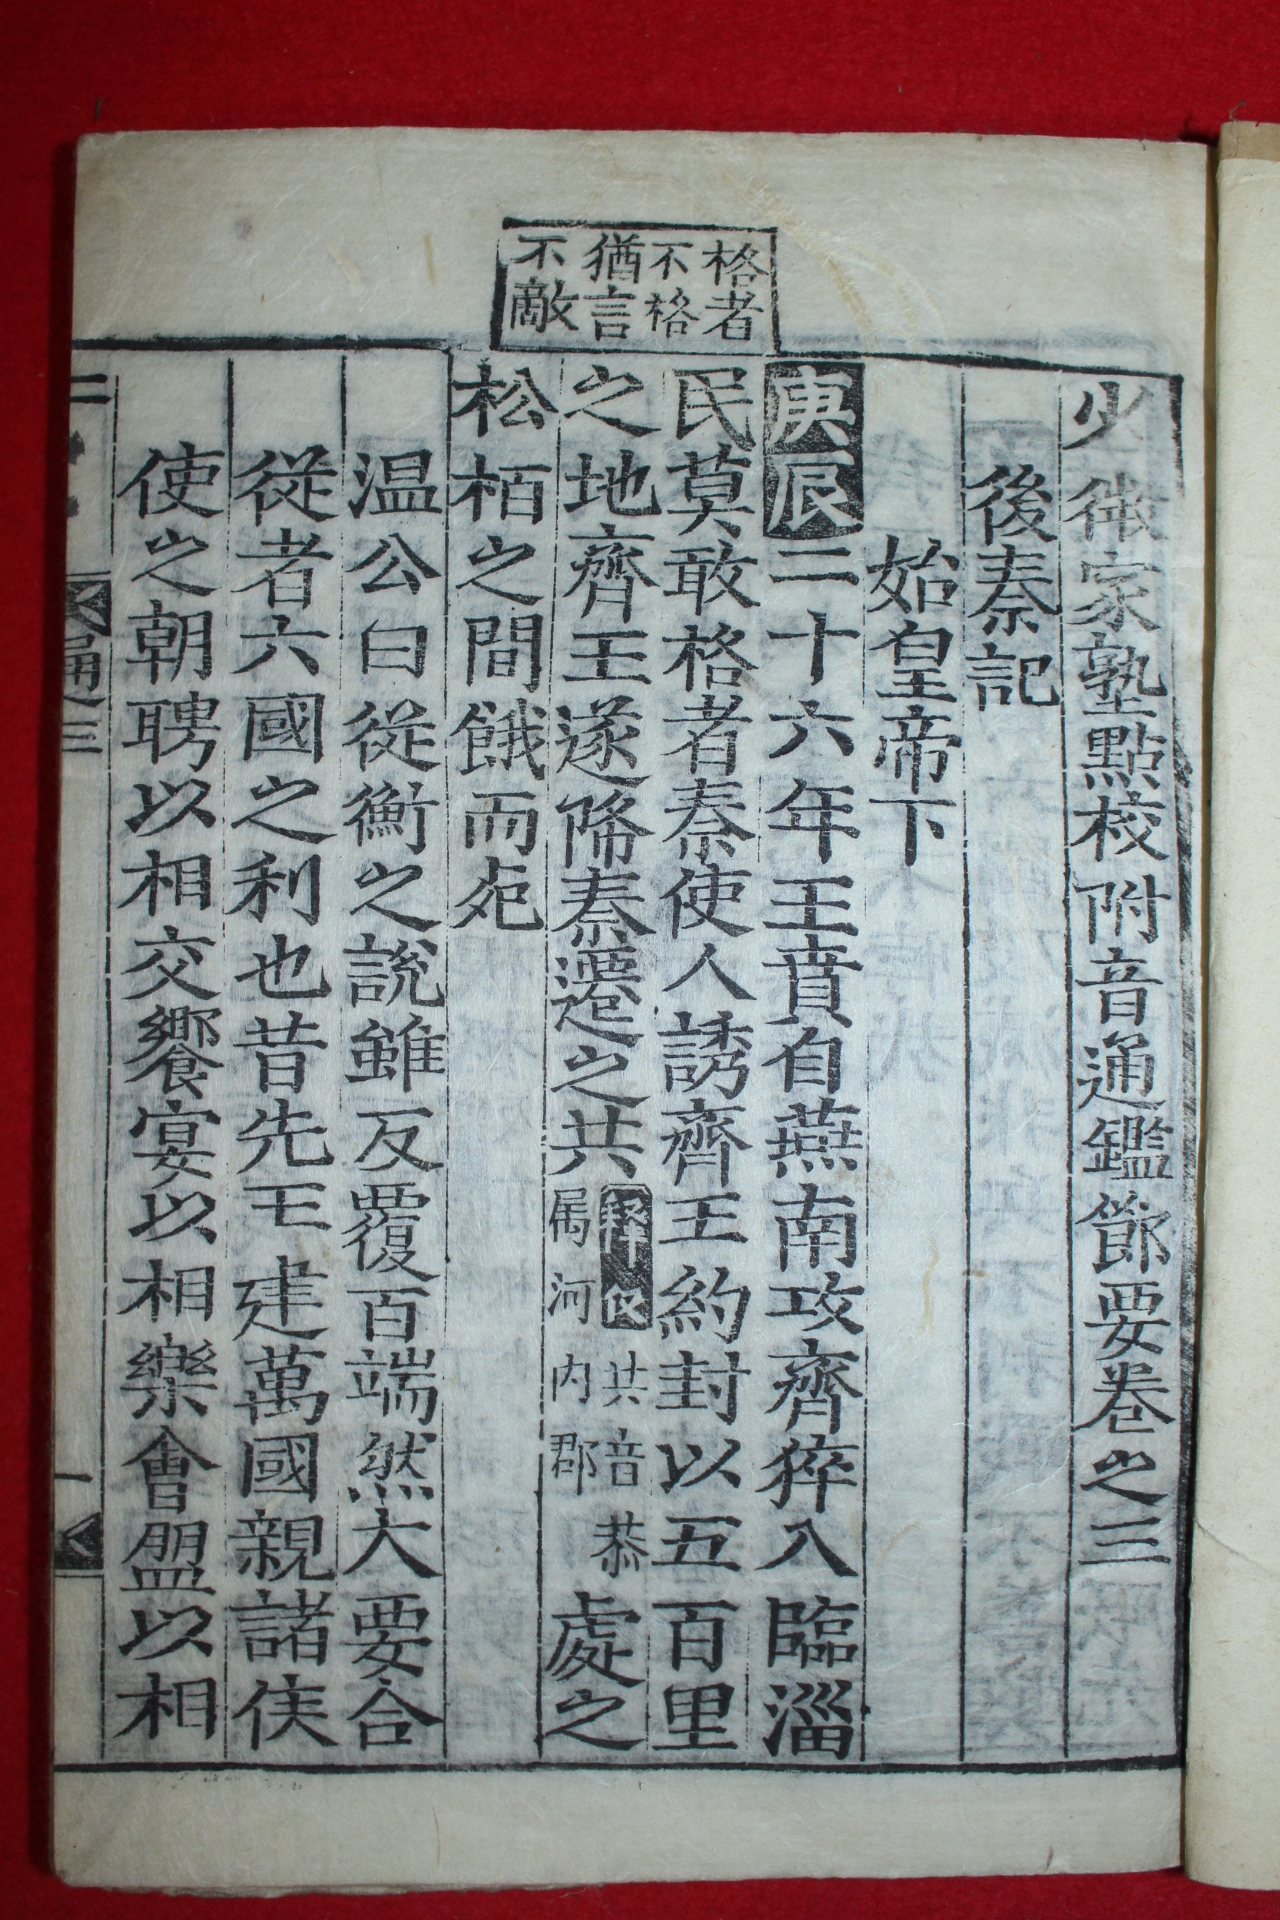 格者
不格
猶言
不敵
少微家塾點校附音通鑑節要卷之三
後秦記
始皇帝下
庚辰二十六年王賁自燕南攻齊猝入臨淄
民莫敢格者秦使人誘齊王約封以五百里
之地齊王遂降秦遷之共釋義共音恭属河内郡處之
松栢之間餓而死
温公曰從衡之說雖反覆百端然大要合
從者六國之利也昔先王建萬國親諸侯
使之朝聘以相交饗宴以相樂會盟以相
通三
一